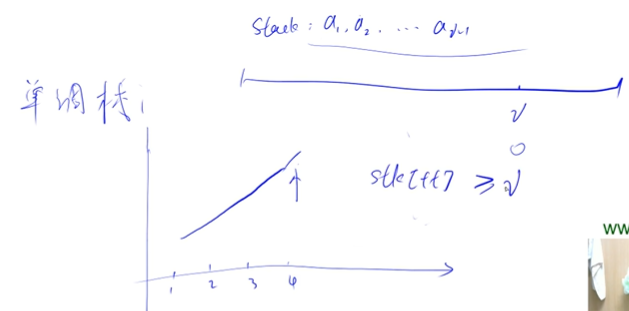 Stack: a₁, a₂, ... aᵢ₋₁
单调栈:
i
0
stk[tt] ≥ aᵢ
1 2 3 4
ww